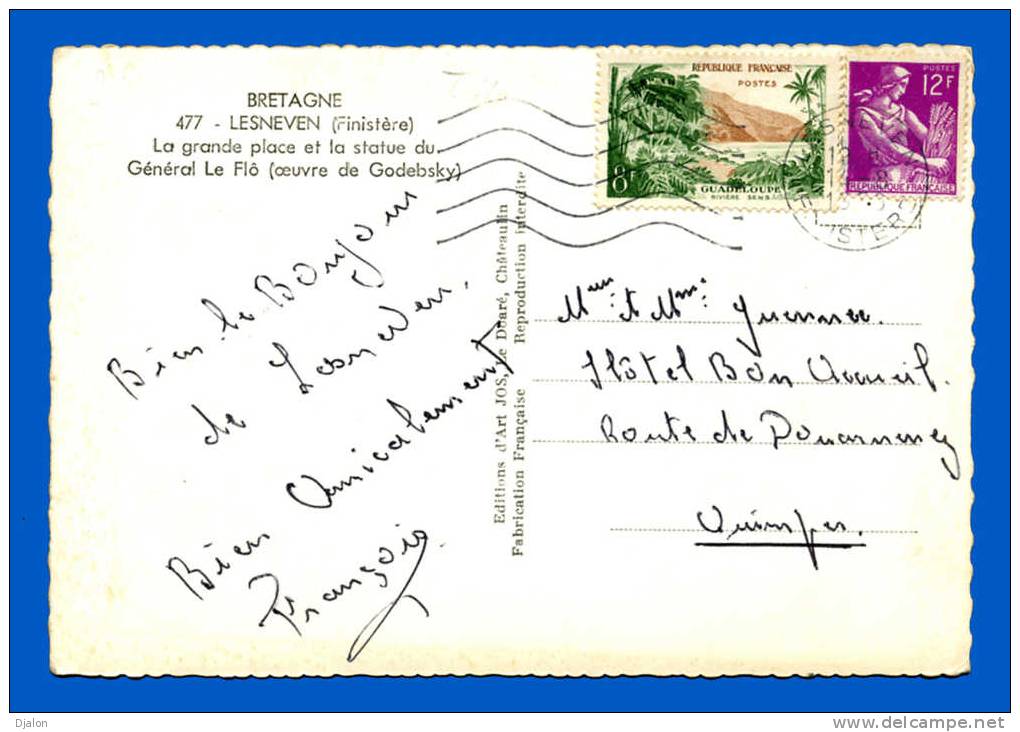 BRETAGNE
477 - LESNEVEN (Finistère)
La grande place et la statue du
Général Le Flô (œuvre de Godebsky)
REPUBLIQUE FRANÇAISE
POSTES
8F
GUADELOUPE
RIVIÈRE SENS
POSTES
12F
REPUBLIQUE FRANÇAISE
Bien le Bonjour
de Lesneven.
Bien Amicalement
François
Editions d'Art JOS, Le Doaré, Châteaulin
Fabrication Française Reproduction interdite
et Mme
Hôtel Bon Accueil.
Route de Douarnenez
Quimper.
Djalon
www.delcampe.net